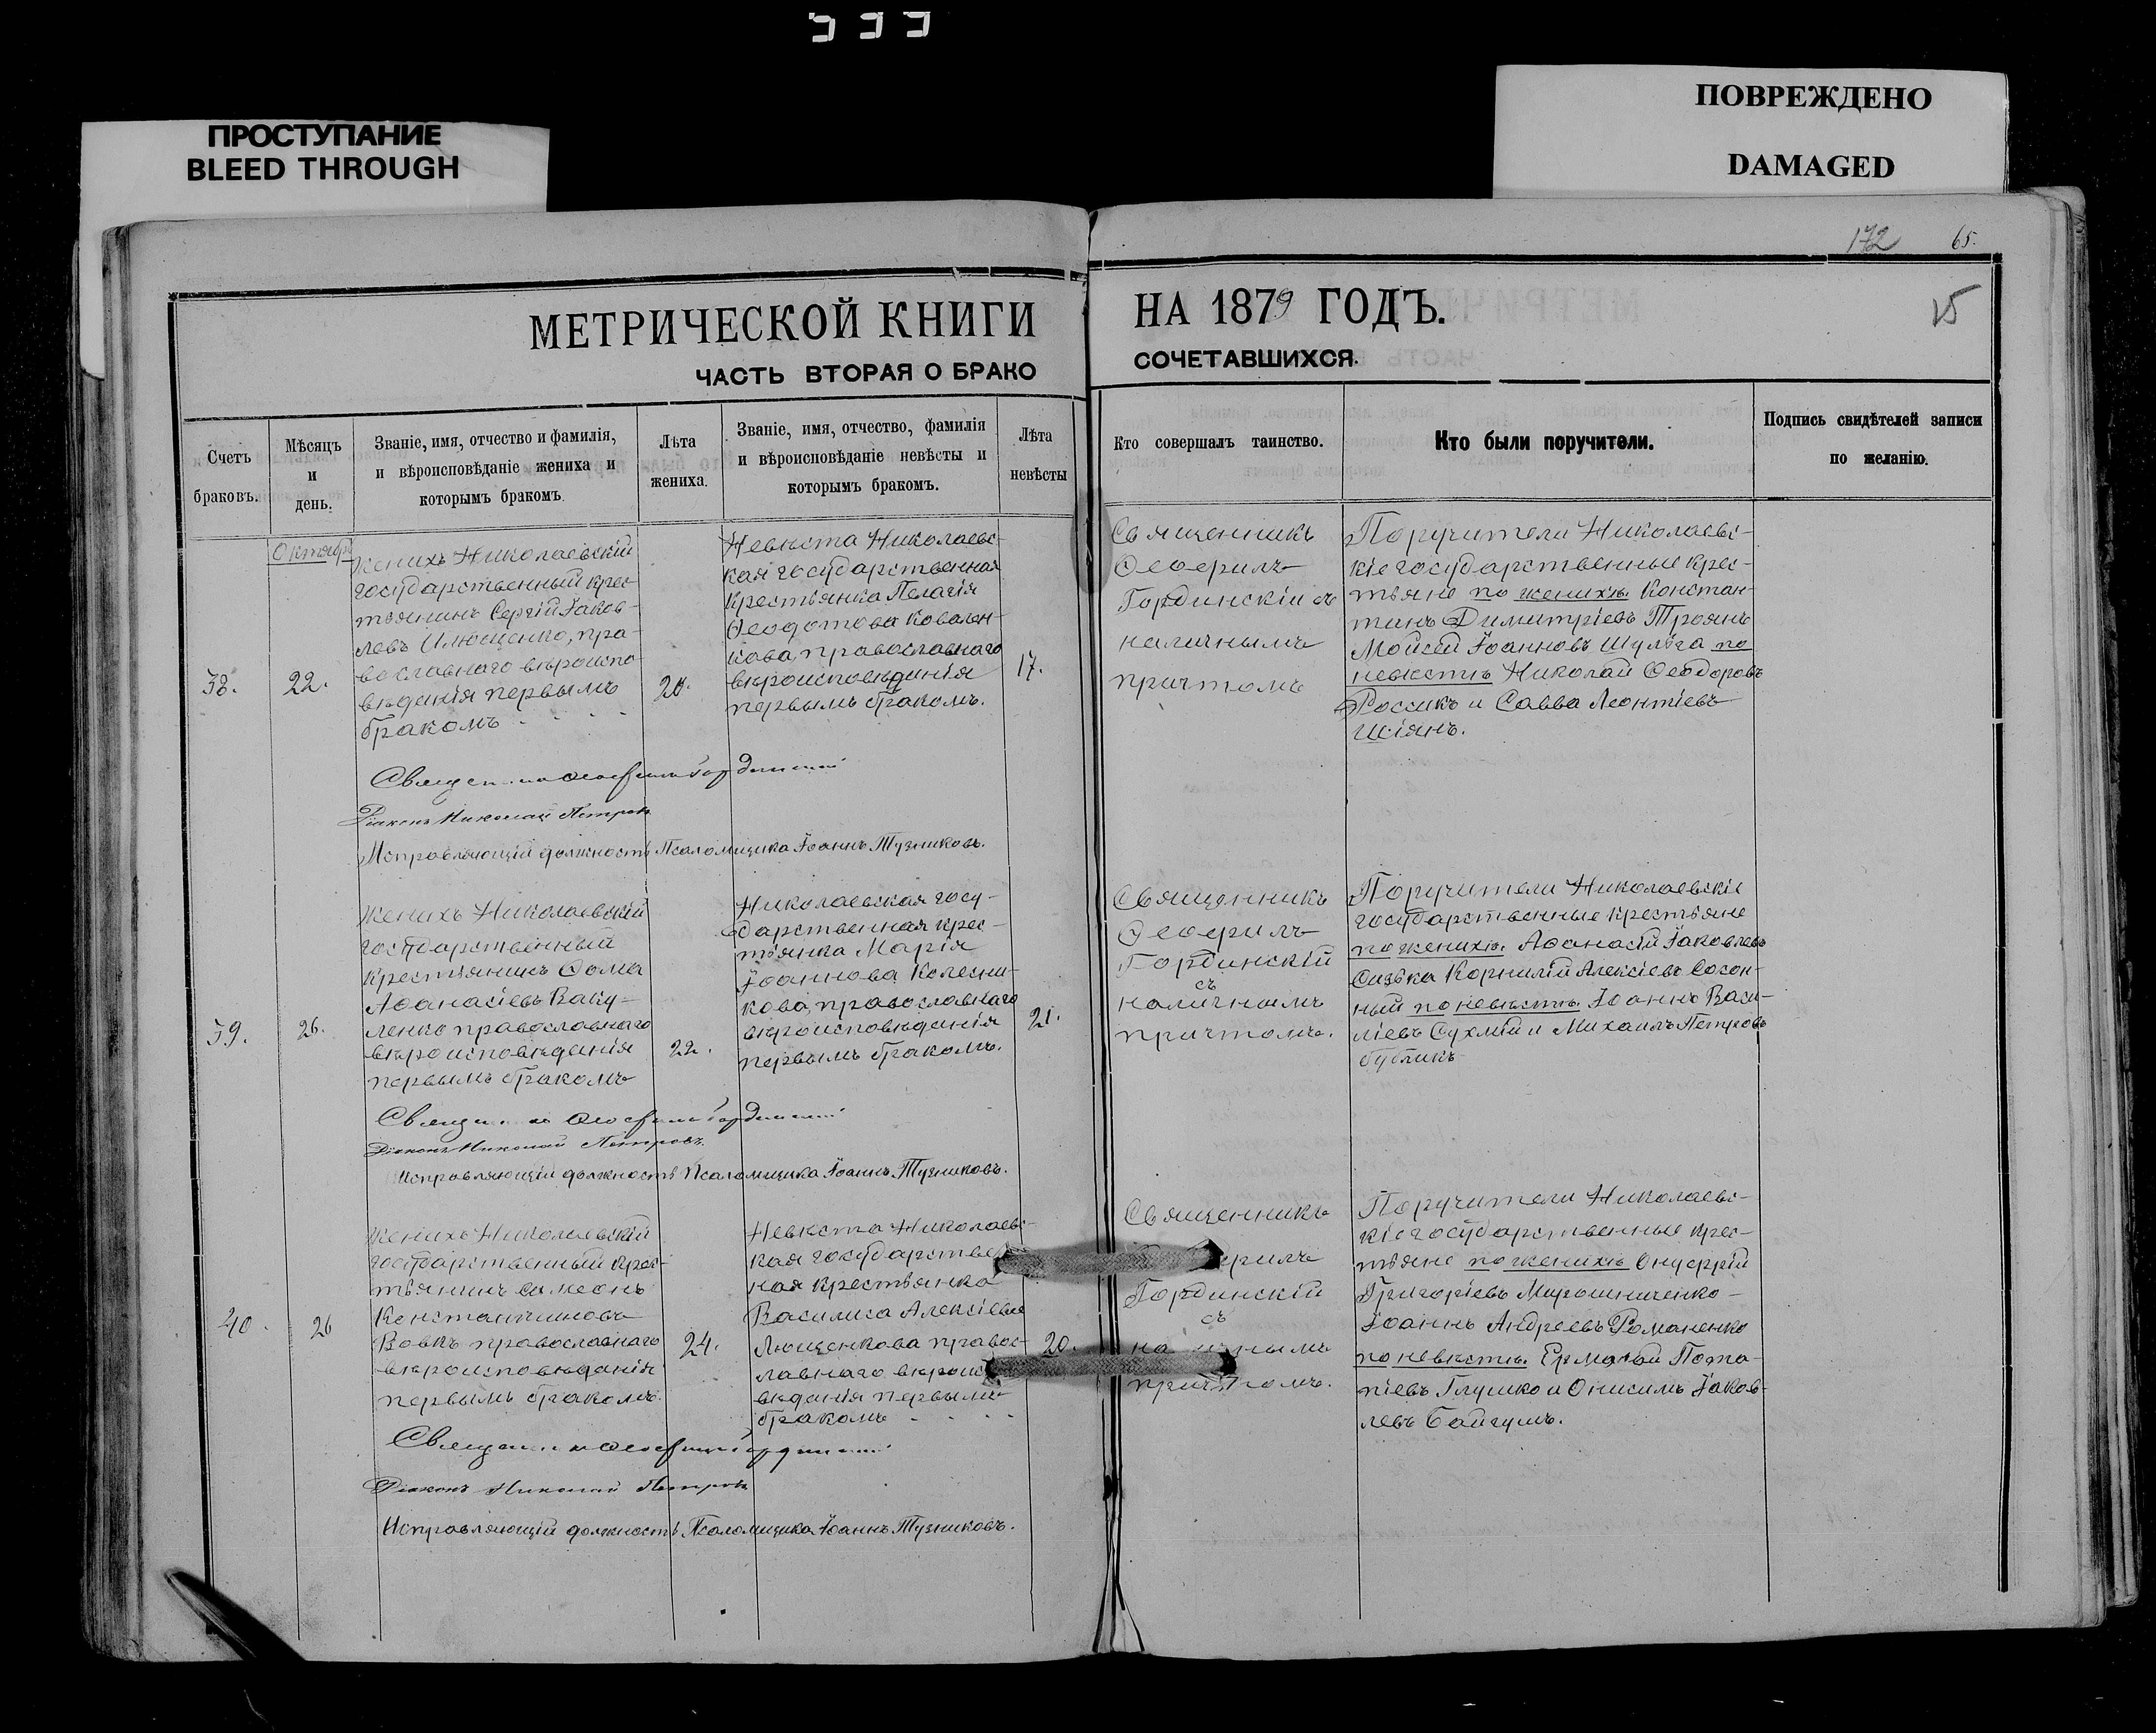 ПРОСТУПАНИЕ
BLEED THROUGH
ПОВРЕЖДЕНО
DAMAGED
172 65.
МЕТРИЧЕСКОЙ КНИГИ
ЧАСТЬ ВТОРАЯ О БРАКО
НА 1879 ГОДЪ.
СОЧЕТАВШИХСЯ.
Счетъ
браковъ.
Мѣсяцъ
и
день.
Званіе, имя, отчество и фамилія,
и вѣроисповѣданіе жениха и
которымъ бракомъ.
Лѣта
жениха.
Званіе, имя, отчество, фамилія
и вѣроисповѣданіе невѣсты и
которымъ бракомъ.
Лѣта
невѣсты
Кто совершалъ таинство.
Кто были поручители.
Подпись свидѣтелей записи
по желанію.
38.
Октябрь
22.
Женихъ Николаевскій
государственный крес-
тьянинъ Сергій Іаков-
левъ Илющенко, пра-
вославнаго вѣроиспо
вѣданія первымъ
бракомъ
20.
Невѣста Николаевс-
кая государственная
крестьянка Пелагія
Ѳеодотова Ковален-
кова, православнаго
вѣроисповѣданія
первымъ бракомъ.
17.
Священникъ
Ѳеофилъ
Гординскій съ
наличнымъ
причтомъ
Поручители Николаевс-
кіе государственные крес-
тьяне по женихѣ Констан-
тинъ Димитріевъ Троянъ
Мойсей Іоанновъ Шульга по
невѣстѣ Николай Ѳеодоровъ
Россикъ и Савва Леонтіевъ
Шіянъ.
Діаконъ Николай Петровъ
Исправляющій должность Псаломщика Іоаннъ Тузниковъ.
39.
26.
Женихъ Николаевскій
государственный
крестьянинъ Ѳома
Аѳанасіевъ Ваку-
ленко православнаго
вѣроисповѣданія
первымъ бракомъ
22.
Николаевская госу-
дарственная крес-
тьянка Марія
Іоаннова Колесни-
кова, православнаго
вѣроисповѣданія
первымъ бракомъ.
21.
Священникъ
Ѳеофилъ
Гординскій
съ
наличнымъ
причтомъ.
Поручители Николаевскіе
государственные крестьяне
по женихѣ Аѳанасій Іаковлевъ
Корнилій Алексіевъ Сосон-
ный по невѣстѣ Іоаннъ Васи-
ліевъ Сухмій и Михаилъ Петровъ
бубликъ
Діаконъ Николай Петровъ.
Исправляющій должность Псаломщика Іоаннъ Тузниковъ.
40.
26
Женихъ Николаевскій
государственный крес-
тьянинъ Симеонъ
Константиновъ
Вовкъ православнаго
вѣроисповѣданія
первымъ бракомъ.
24.
Невѣста Николаевс-
кая государствен
ная крестьянка
Василиса Алексіева
Лющенкова правос-
лавнаго вѣроис
вѣданія первымъ
бракомъ
20.
Священникъ
филъ
Гординскій
съ
на нымъ
причтомъ.
Поручители Николаевс-
кіе государственные крес-
тьяне по женихѣ Онуфрій
Григоріевъ Мирошниченко
Іоаннъ Андреевъ Романенко
по невѣстѣ Ермолай Пота-
піевъ Глушко и Онисимъ Іаков-
левъ Байгушъ.
Діаконъ Николай Петровъ
Исправляющій должность Псаломщика Іоаннъ Тузниковъ.